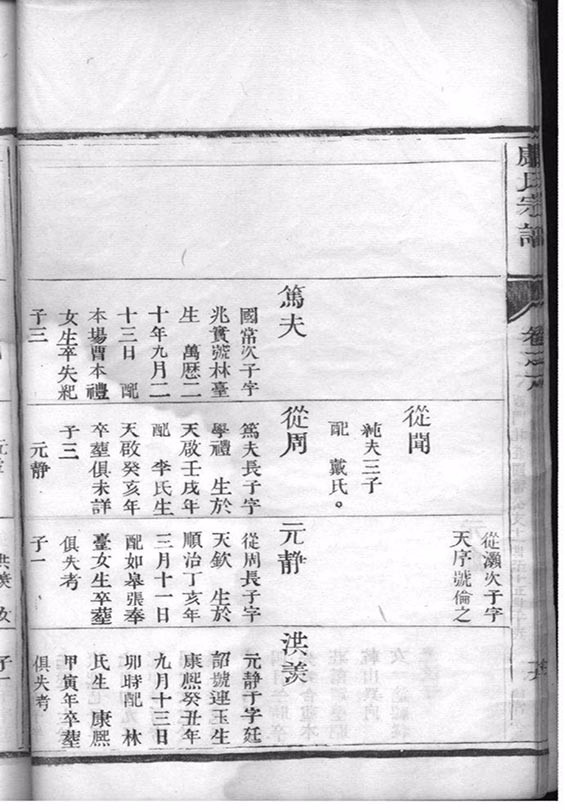 氏宗譜
卷之
篤夫
國常次子字
兆實號林臺
生 萬歷二
十年九月二
十三日 配
本場曹本禮
女生卒失紀
子三
從聞
純夫三子
配 戴氏。
從周
篤夫長子字
學禮 生於
天啟壬戌年
配 李氏生
天啟癸亥年
卒塟俱未詳
子三
元靜
從灝次子字
天序號倫之
元靜
從周長子字
天欽 生於
順治丁亥年
三月十一日
配如皋張奉
臺女生卒塟
俱失考
子一
洪羡
元靜子字廷
詔號連玉生
康熙癸丑年
九月十三日
卯時配 林
氏生 康熙
甲寅年卒塟
俱失考